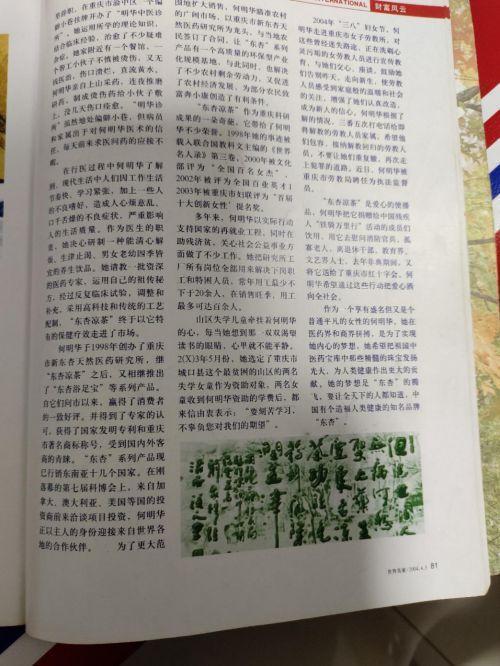 INTERNATIONAL 财富风云
在重庆市渝中区一个偏
僻小巷挂牌开办了“明华中医诊
所”。她运用所学的理论知识,
结合临床经验,治愈了不少疑难
杂症。她家附近有一个餐馆,一
个帮工小伙子不慎被烫伤,又无
钱医治,伤口溃烂,直流黄水。
何明华亲自上山采药,连夜推磨
研药,制成烫伤药给小伙子敷
上,没几天伤口痊愈。“明华诊
所”虽然地处偏僻小巷,但病员
和家属出于对何明华医术的信
任,每天前来求医问药的应接不
暇。
在行医过程中何明华了解
到,现代生活中人们因工作生活
节奏快,学习紧张,加上一些人
的不良嗜好,造成人心烦意乱、
口干舌燥的不良症状,严重影响
人的生活质量。作为医生的职
责,她决心研制一种能清心解
烦、生津止渴、男女老幼四季皆
宜的养生饮品。她请教一批资深
的医药专家,运用自己的祖传秘
方,经过反复临床试验,调整和
补充,采用高科技和传统的工艺
配制,“东杏凉茶”终于以它特
有的保健疗效走进了市场。
何明华于1998年创办了重庆
市新东杏天然医药研究所,继
“东杏凉茶”之后,又相继推出
了“东杏浴足宝”等系列产品。
自它们问市以来,赢得了消费者
的一致好评。并得到了专家的认
可,获得了国家发明专利和重庆
市著名商标称号,受到国内外客
商的青睐。“东杏”系列产品现
已行销东南亚十几个国家。在刚
落幕的第七届科博会上,来自加
拿大、澳大利亚、美国等国的投
资商前来洽谈项目投资,何明华
正以主人的身份迎接来自世界各
地的合作伙伴。 为了更大范
围地扩大销售,何明华瞄准农村
的广州市场,以重庆市新东杏天
然医药研究所为龙头,与当地农
民签订了合同,让“东杏”系列
产品有一个高质量的环保型产业
化规模基地。与此同时,也解决
了不少农村剩余劳动力,又促进
了农村经济发展,为部分农民致
富奔小康创造了有利条件。
“东杏凉茶”作为重庆科研
成果的一朵奇葩,它带给了何明
华不少荣誉。1998年她的事迹被
载入联合国教科文主编的《世界
名人录》第三卷,2000年被文化
部评为“全国百名女杰”,
2002年被评为全国百业英才1
2003年被重庆市妇联评为“首届
十大创新女性”提名奖。
多年来,何明华以实际行动
支持国家的再就业工程,同时在
助残济贫、关心社会公益事业方
面做了不少工作。她把研究所工
厂所有岗位全部用来解决下岗职
工和特困人员,常年用工最少不
下于20余人,在销售旺季,用工
最多可达百余人。
山区失学儿童牵挂着何明华
的心,每当她想到那一双双渴望
读书的眼睛,心里就不能平静。
2(X)3年5月份,她选定了重庆市
城口县这个最贫困的山区的两名
失学女童作为资助对象,两名女
童收到何明华资助的学费后,都
来信由衷表示:“要刻苦学习,
不辜负您对我们的期望”。
2004年“三八”妇女节,何
明华走进重庆市女子劳教所,对
这些曾经迷失路途、正在洗刷心
灵污垢的女劳教人员进行宣传教
育,与她们交心、座谈,鼓励她
们告别昨天,走向新生,使劳教
人员感受到家庭般的温暖和社会
的关注,增强了她们认真改造,
成为新人的信心。何明华根据了
解的情况,三番五次打电话给即
将解教的劳教人员家属,希望他
们包容、接纳解教回归的劳教人
员,不要让她们重复辙,再次走
上犯罪的道路。近日,何明华被
重庆市劳教局聘任为执法监督
员。
“东杏凉茶”是爱心的使播
品,何明华把它捐赠给中国残疾
人“铁骑万里行”活动的成员们
饮用,用它去慰问消防官兵、孤
寡老人、离退休干部、教育界、
文艺界人士。去年非典期间,又
将它送给了重庆市红十字会。何
明华希望通过这些行动把爱心洒
向全社会。
作为一个享有盛名但又是个
普通平凡的女性的何明华,她在
医药界和商界拼搏,是为了实现
她内心的梦想,她希望把祖国中
医药宝库中那些精髓的珠宝发扬
光大,为人类健康作出更大的贡
献,她的梦想是“东杏”的腾
飞,要让全天下的人都知道,中
国有个造福人类健康的知名品牌
“东杏”。
世界英才/2004.4.5 81